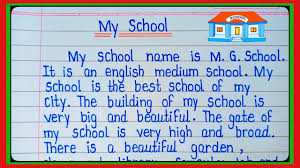 SCHOOL
My School
My school name is M. G. School.
It is an english medium school. My
school is the best school of my
city. The building of my school is
very big and beautiful. The gate of
my school is very high and broad.
There is a beautiful garden,